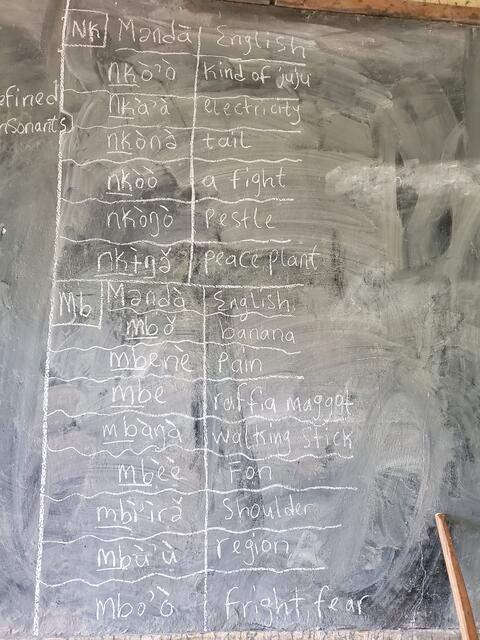 Nk Məndà English
nkò'ò kind of juju
efined
nkà'à electricity
nsonants)
nkònə̀ tail
nkòò a fight
nkòŋò Pestle
nkɨ̀ŋə̌ peace plant
Mb Məndà English
mbǒ banana
mbenè Pain
mbe raffia maggot
mbaŋà walking stick
mbeè Fon
mbì'irə̌ Shoulder
mbù'ù region
mbo'ò fright, fear